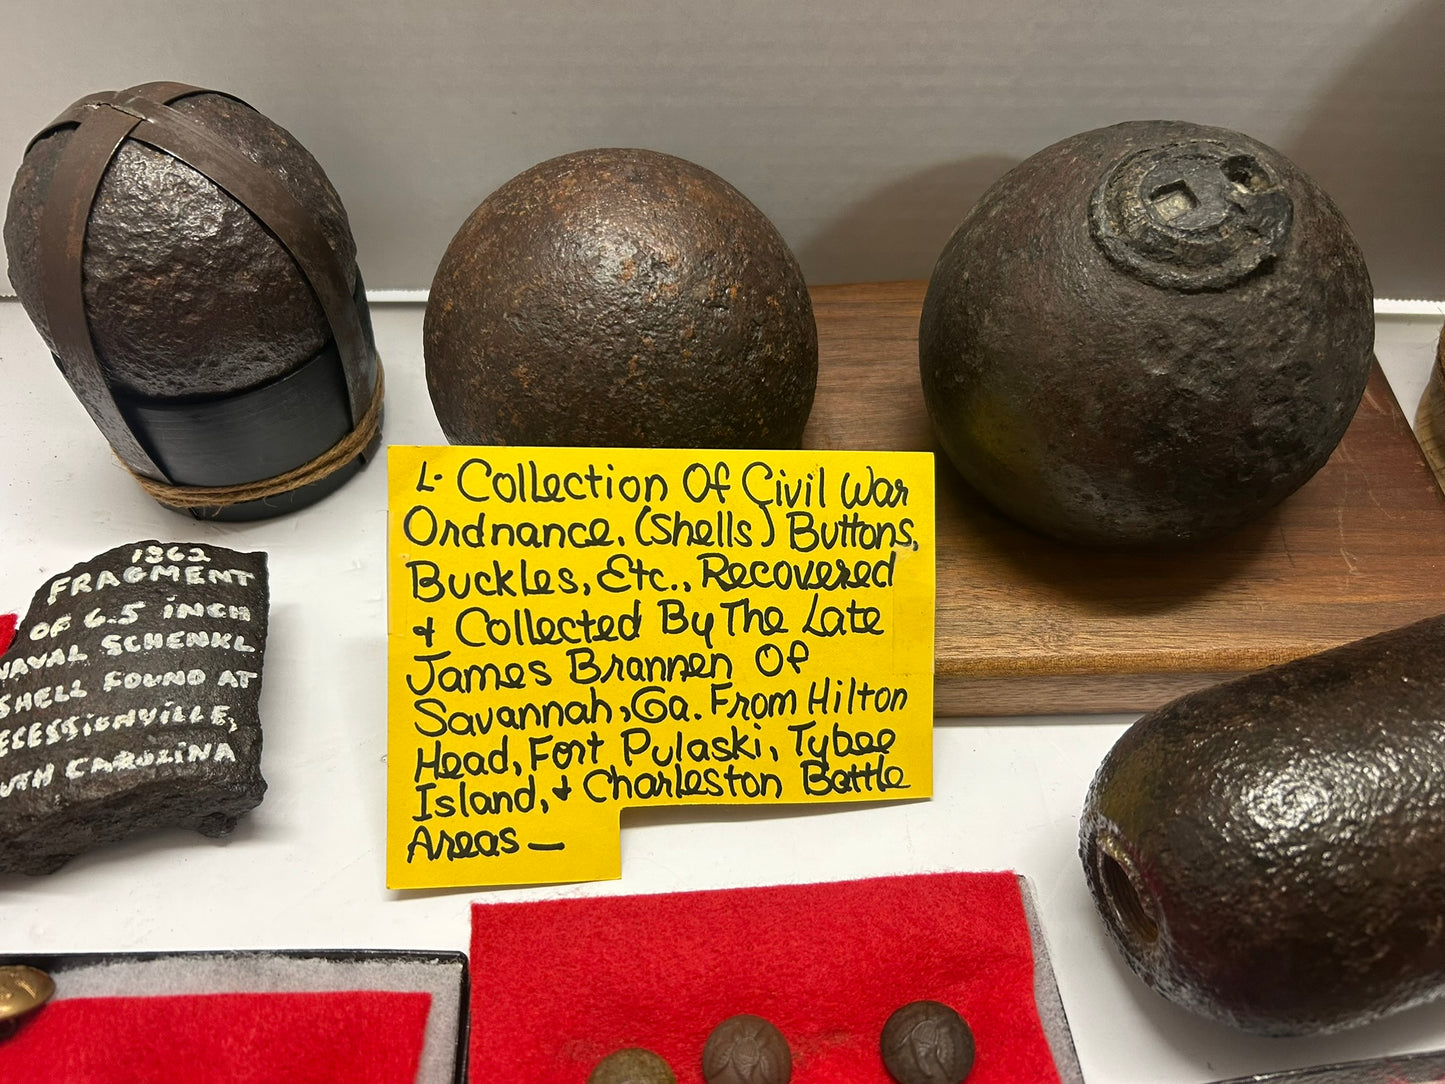 L- Collection Of Civil War
Ordnance. (Shells) Buttons,
Buckles, Etc., Recovered
& Collected By The Late
James Brannen Of
Savannah, Ga. From Hilton
Head, Fort Pulaski, Tybee
Island, & Charleston Battle
Areas —
1862
FRAGMENT
OF 6.5 INCH
NAVAL SCHENKL
SHELL FOUND AT
ECESSIONVILLE,
UTH CAROLINA